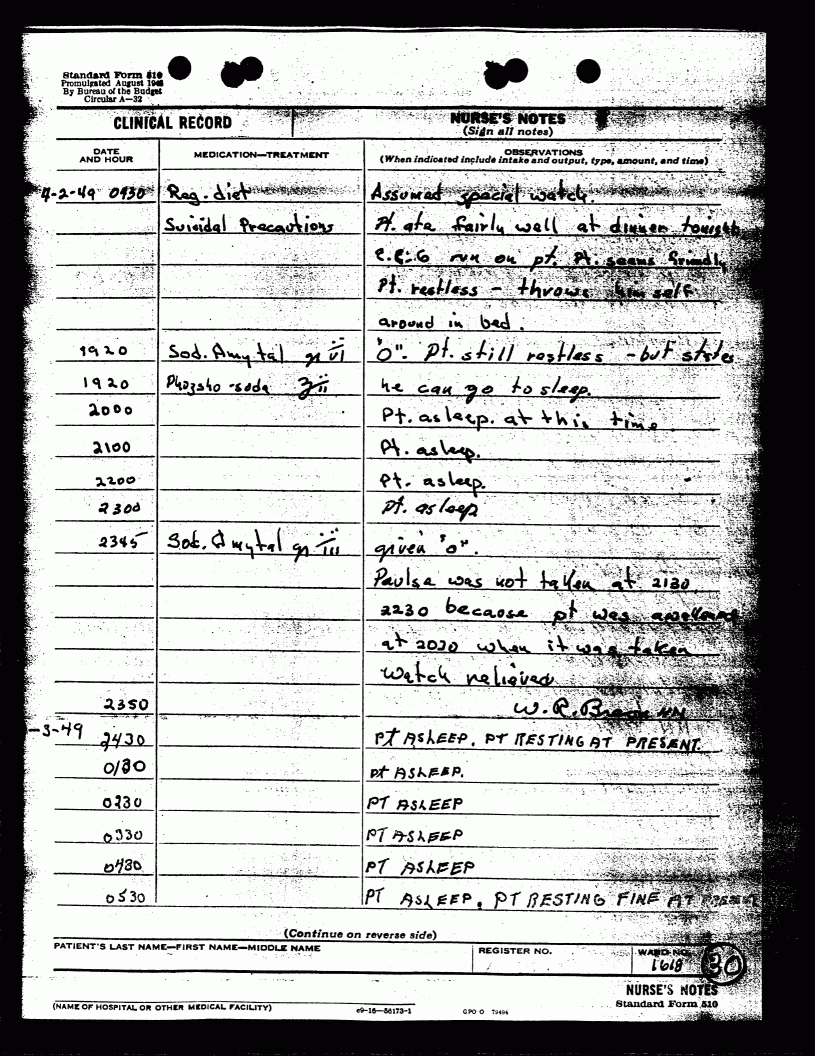 Standard Form 510
Promulgated August 1948
By Bureau of the Budget
Circular A—32
CLINICAL RECORD
NURSE'S NOTES
(Sign all notes)
DATE AND HOUR
MEDICATION—TREATMENT
OBSERVATIONS
(When indicated include intake and output, type, amount, and time)
4-2-49 0930 Reg. diet Assumed special watch.
Suicidal Precautions Pt. ate fairly well at dinner tonight
run on pt. Pt. seems friendly
Pt. restless - throws himself
around in bed.
1920 Sod. Amytal gr vi "O". Pt. still restless - but states
1920 Phozsho-soda ʒii he can go to sleep.
2000 Pt. asleep. at this time.
2100 Pt. asleep.
2200 Pt. asleep.
2300 pt. asleep
2345 Sod. Amytal gr iii given "o".
Paulse was not taken at 2130
2230 because pt was
at 2030 when it was taken
Watch relieved
2350 W. R. Brown
-3-49 2430 pt ASLEEP. PT RESTING AT PRESENT.
0130 pt ASLEEP.
0230 PT ASLEEP
0330 PT ASLEEP
0430 PT ASLEEP
0530 PT ASLEEP. PT RESTING FINE AT PRESENT
(Continue on reverse side)
PATIENT'S LAST NAME—FIRST NAME—MIDDLE NAME
REGISTER NO.
WARD NO.
1618 30
NURSE'S NOTES
Standard Form 510
(NAME OF HOSPITAL OR OTHER MEDICAL FACILITY)
c9—16—56173-1
GPO O 79494